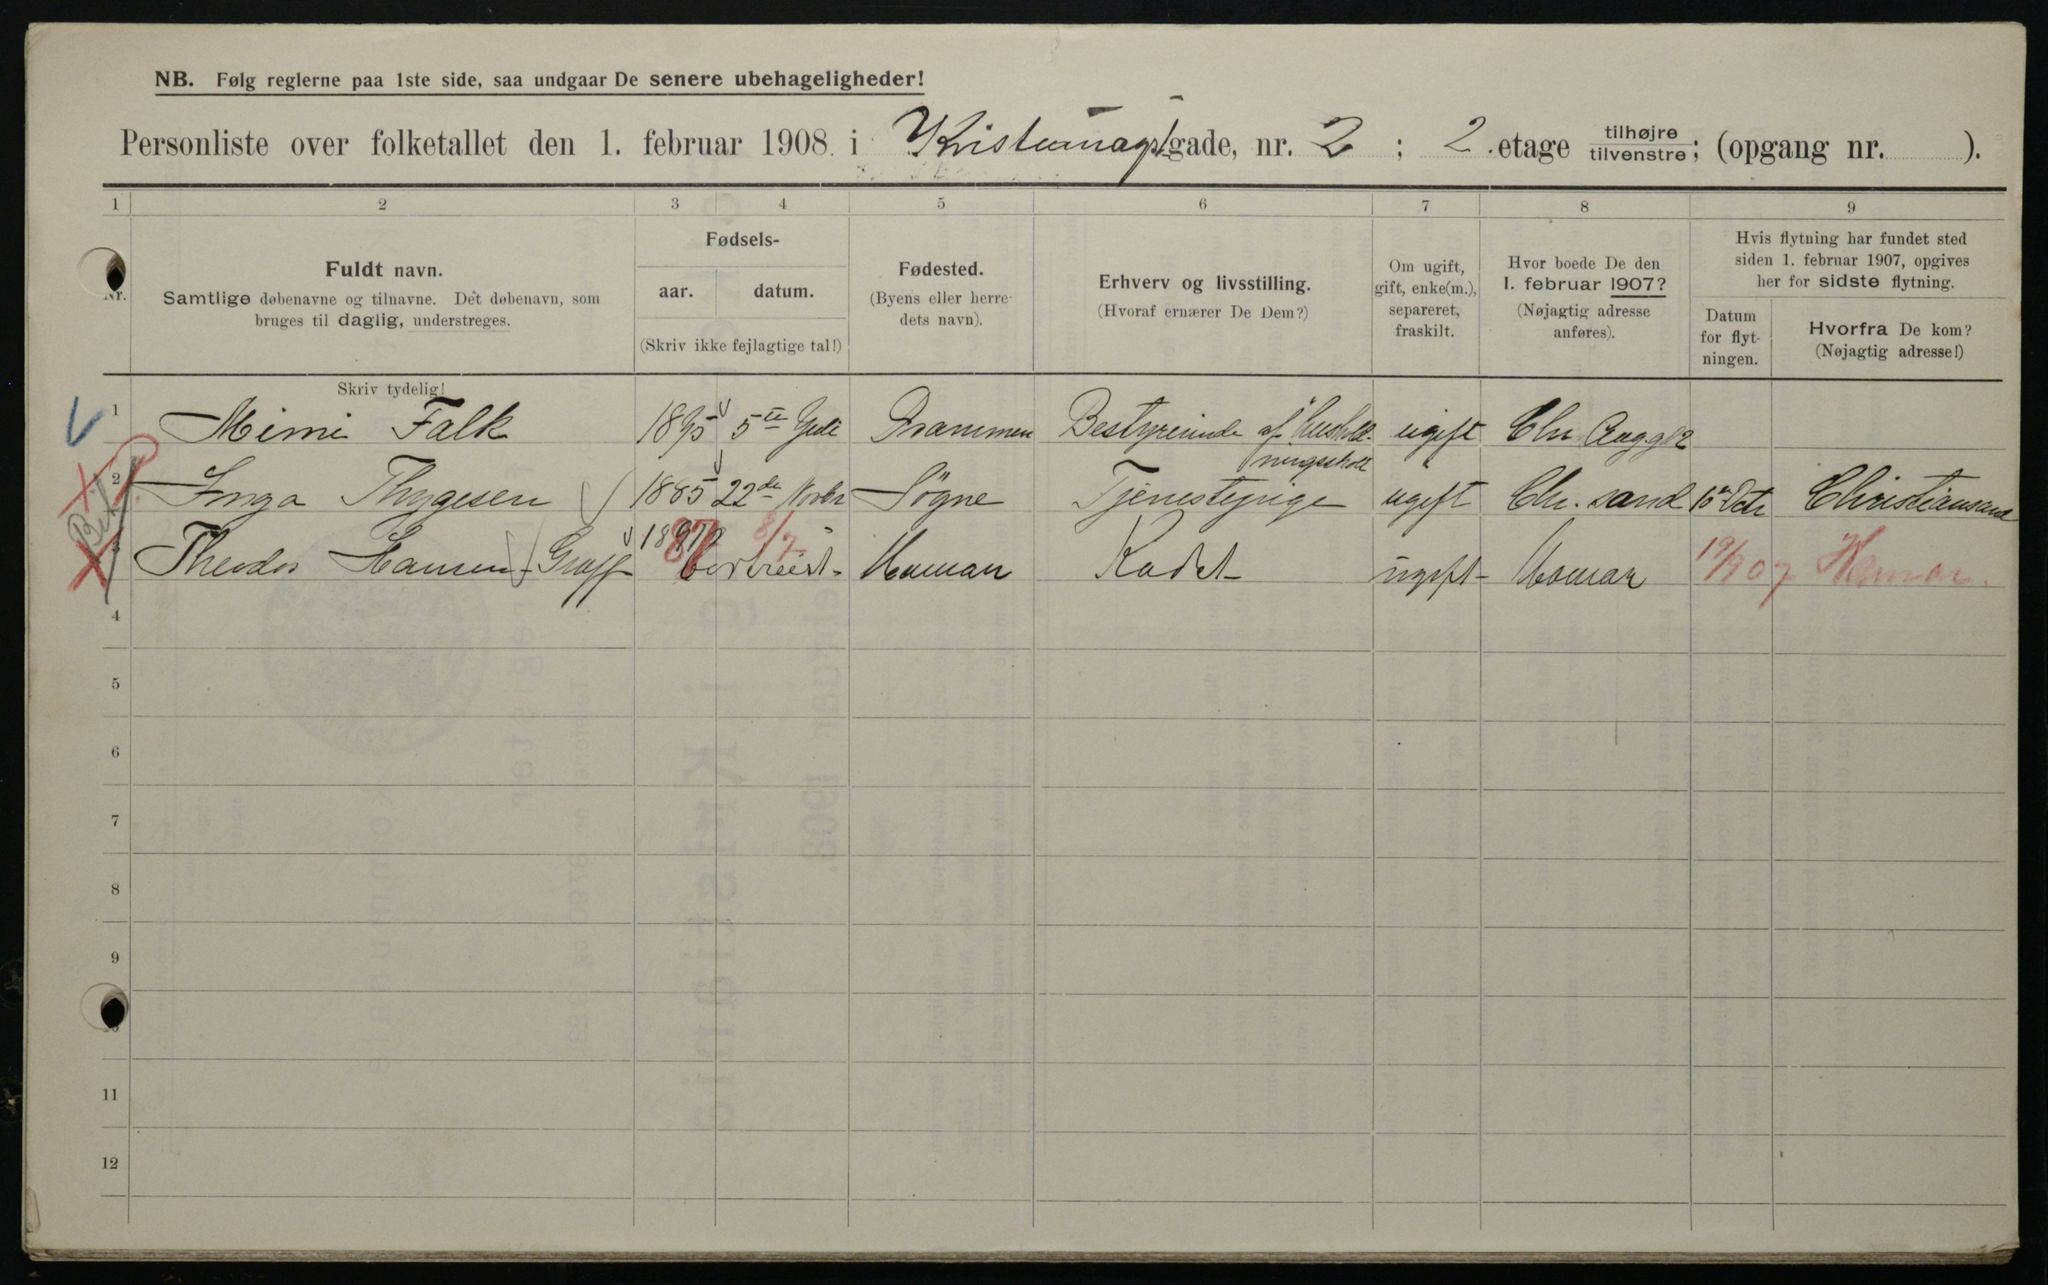 NB. Følg reglerne paa 1ste side, saa undgaar De senere ubehageligheder!
Personliste over folketallet den 1. februar 1908 i Kristinaagt.gade, nr. 2 ; 2 etage tilhøjre/tilvenstre; (opgang nr. ).
1 2 3 4 5 6 7 8 9
Nr.
Fuldt navn.
Samtlige døbenavne og tilnavne. Det døbenavn, som
bruges til daglig, understreges.
Fødsels-
aar. datum.
(Skriv ikke fejlagtige tal!)
Fødested.
(Byens eller herre-
dets navn).
Erhverv og livsstilling.
(Hvoraf ernærer De Dem?)
Om ugift,
gift, enke(m.),
separeret,
fraskilt.
Hvor boede De den
1. februar 1907?
(Nøjagtig adresse
anføres).
Hvis flytning har fundet sted
siden 1. februar 1907, opgives
her for sidste flytning.
Datum
for flyt-
ningen.
Hvorfra De kom?
(Nøjagtig adresse!)
Skriv tydelig!
1 Mimi Falk 1895 5te Juli Drammen Bestyrerinde af hushold- ugift Chr Aagg 2
ningsskole
2 Inga Thygesen 1885 22de Novbr Søgne Tjenestepige ugift Chr. sand 15 Octr Christiansand
3 Theodor Hansen Graff 87 8/7 Hamar Kadet ugift Hamar 19/9 07 Hamar.
4
5
6
7
8
9
10
11
12